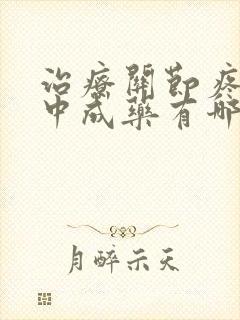 治療關節疼
中成藥有哪
月醉示天